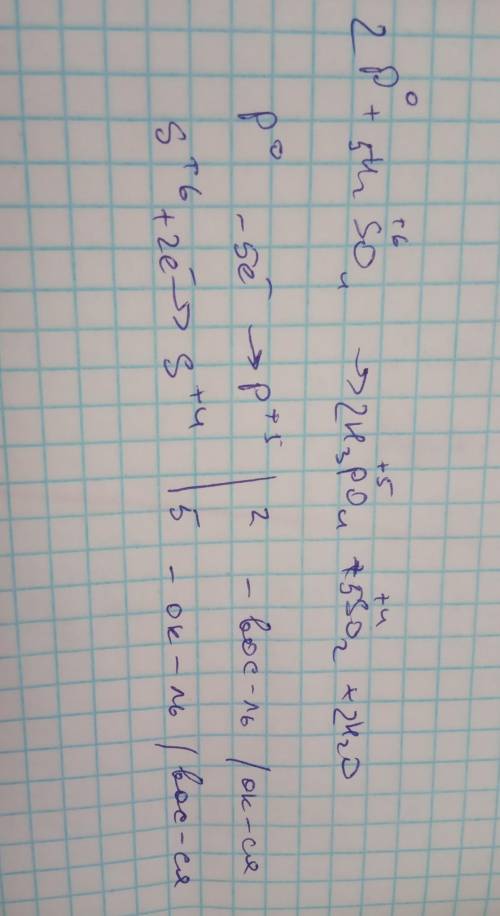 2P⁰ + 5H₂S⁺⁶O₄ → 2H₃P⁺⁵O₄ + 5S⁺⁴O₂ + 2H₂O
P⁰ - 5e⁻ → P⁺⁵ | 2 - вос-ль / ок-ся
S⁺⁶ + 2e⁻ → S⁺⁴ | 5 - ок-ль / вос-ся